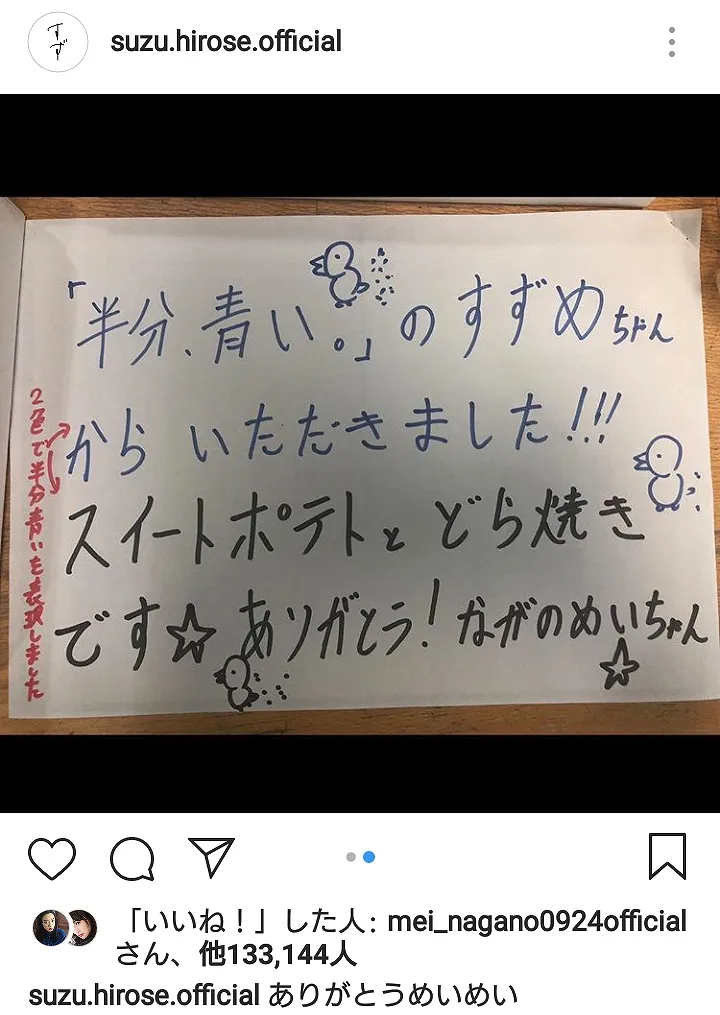 すず
suzu.hirose.official
「半分、青い。」のすずめちゃん
からいただきました!!!
スイートポテトとどら焼き
です☆ありがとう!ながのめいちゃん☆
2色で半分青いを表現しました
「いいね!」した人: mei_nagano0924official
さん、他133,144人
suzu.hirose.official ありがとうめいめい